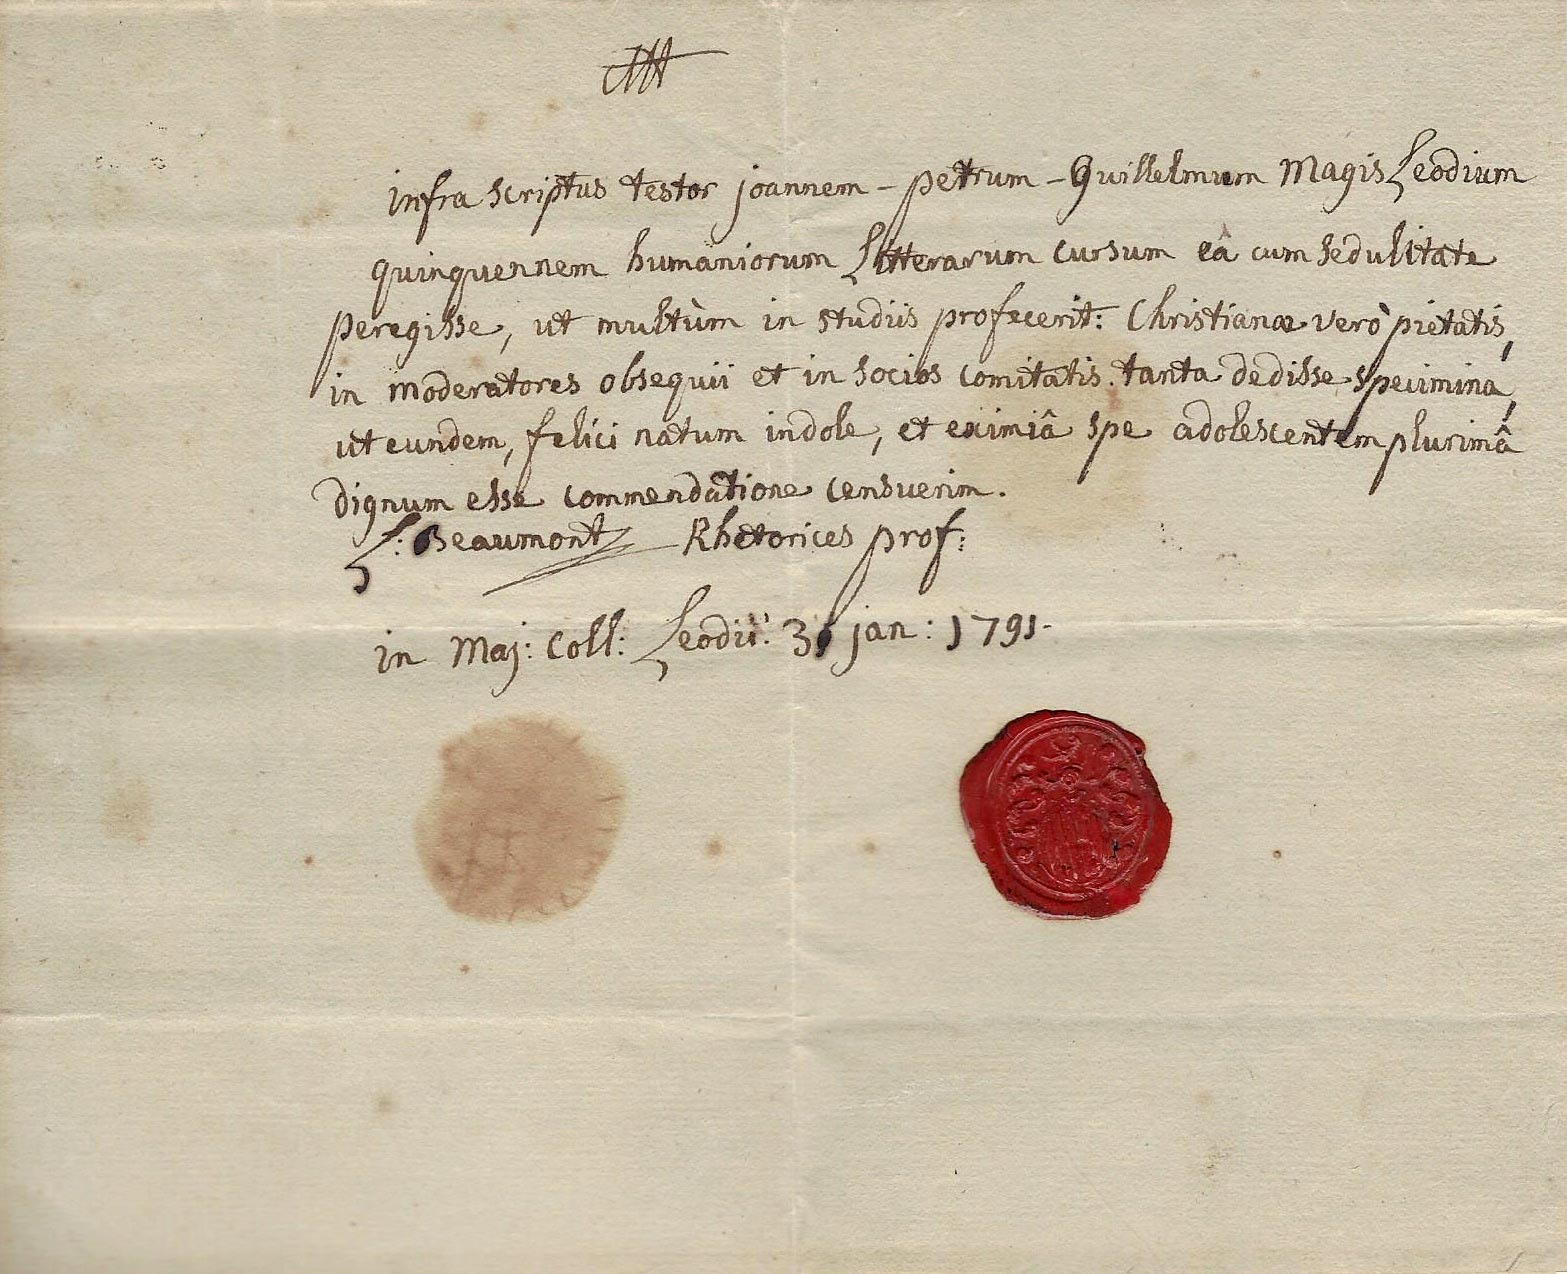 infra scriptus testor joannem - petrum - Guillelmum Magis Leodium
quinquennem humaniorum Litterarum cursum eâ cum sedulitate
peregisse, ut multùm in studiis profecerit: Christianæ verò pietatis,
in moderatores obsequii et in socios comitatis tanta dedisse specimina,
ut eundem, felici natum indole, et eximiâ spe adolescentem plurimâ
dignum esse commendatione censuerim.
L: Beaumont Rhetorices prof:
in Maj: Coll: Leodii: 31 jan: 1791.